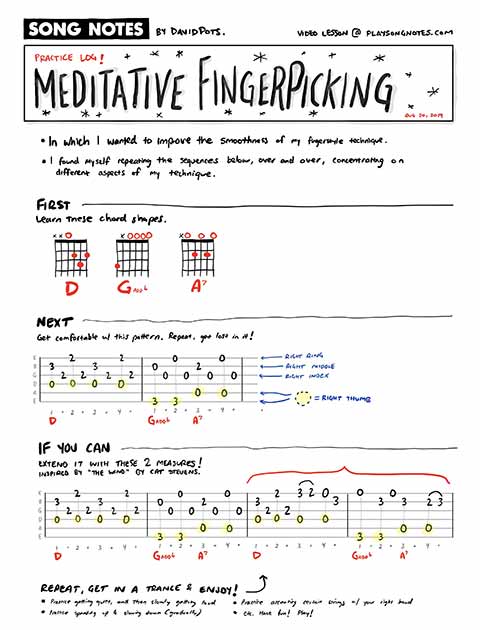 SONG NOTES BY DAVID POTS. VIDEO LESSON @ PLAYSONGNOTES.COM
PRACTICE LOG!
MEDITATIVE FINGERPICKING
• In which I wanted to improve the smoothness of my fingerstyle technique.
• I found myself repeating the sequences below, over and over, concentrating on
different aspects of my technique.
FIRST
Learn these chord shapes.
x x o x o o o o x o o o
D Gadd6 A7
NEXT
Get comfortable w/ this pattern. Repeat, get lost in it!
RIGHT RING
RIGHT MIDDLE
RIGHT INDEX
= RIGHT THUMB
D Gadd6 A7
IF YOU CAN
EXTEND IT WITH THESE 2 MEASURES!
INSPIRED BY "THE WIND" BY CAT STEVENS.
D Gadd6 A7 D Gadd6 A7
REPEAT, GET IN A TRANCE & ENJOY!
• Practice getting quiet, and then slowly getting loud
• Practice accenting certain strings w/ your right hand
• Practice speeding up & slowing down (gradually)
• Etc. Have fun! Play!